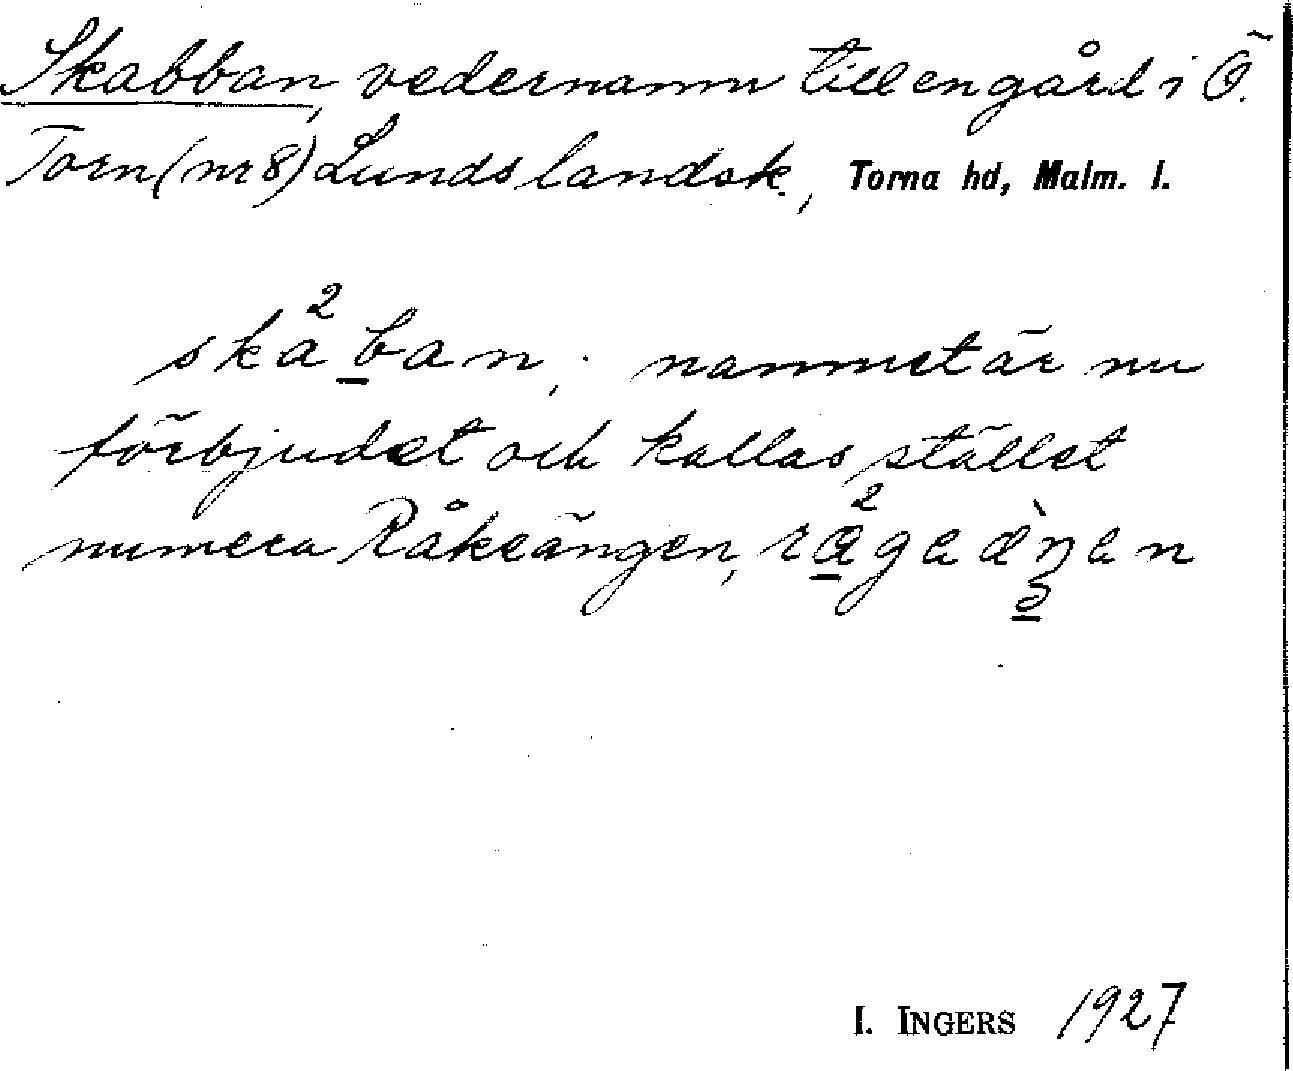 Skabban, vedernamn till en gård i Ö.
Torn (nr 8) Lunds landsk., Torna hd, Malm. l.
ska²ban; namnet är nu
förbjudet och kallas stället
numera Råkeängen,
I. INGERS 1927